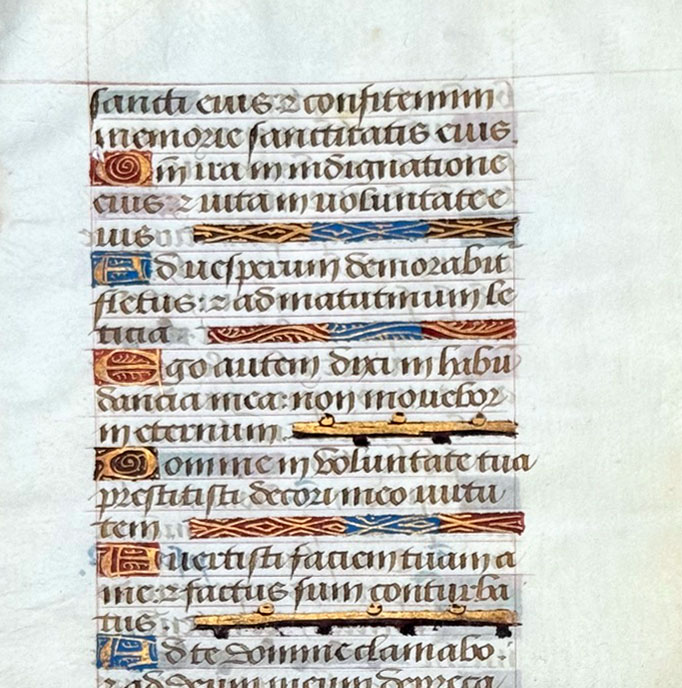 sancti eius: ⁊ confitemini
memorie sanctitatis eius.
Qm̄ ira in indignatione
eius: ⁊ uita in uoluntate e
uius
Ad uesperum demorabit
fletus: ⁊ ad matutinum le
ticia
Ego autem dixi in habu
dancia mea: non mouebor
in eternum.
Domine in voluntate tua
prestitisti decori meo uirtu
tem
Auertisti faciem tuam a
me: ⁊ factus sum conturba
tus:
Ad te domine clamabo:
⁊ ad deum meum depreca